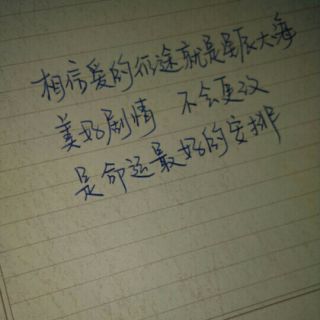 相信爱的征途就是星辰大海
美好剧情 不会更改
是命运最好的安排